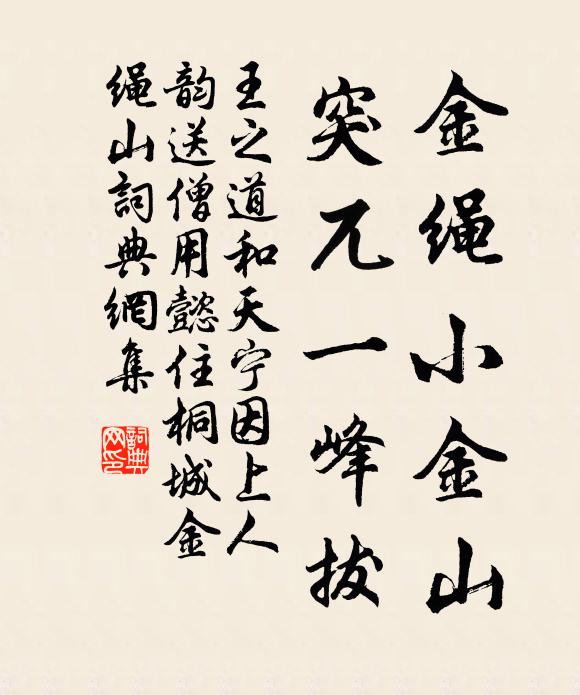 金绳小金山
突兀一峰拔
王之道和天宁因上人
韵送僧用懿住桐城金
绳山詞典網集
詞典
网印